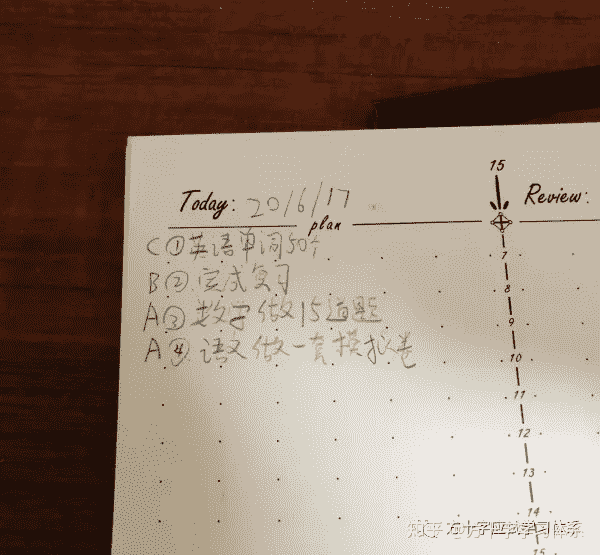 15
Today: 2016/17
Review:
plan
C ① 英语单词50个
B ② 完成复习
A ③ 数学做15道题
A ④ 语文做一套模拟卷
7
8
9
10
11
12
13
14
15
知乎 @方十字应试学习体系